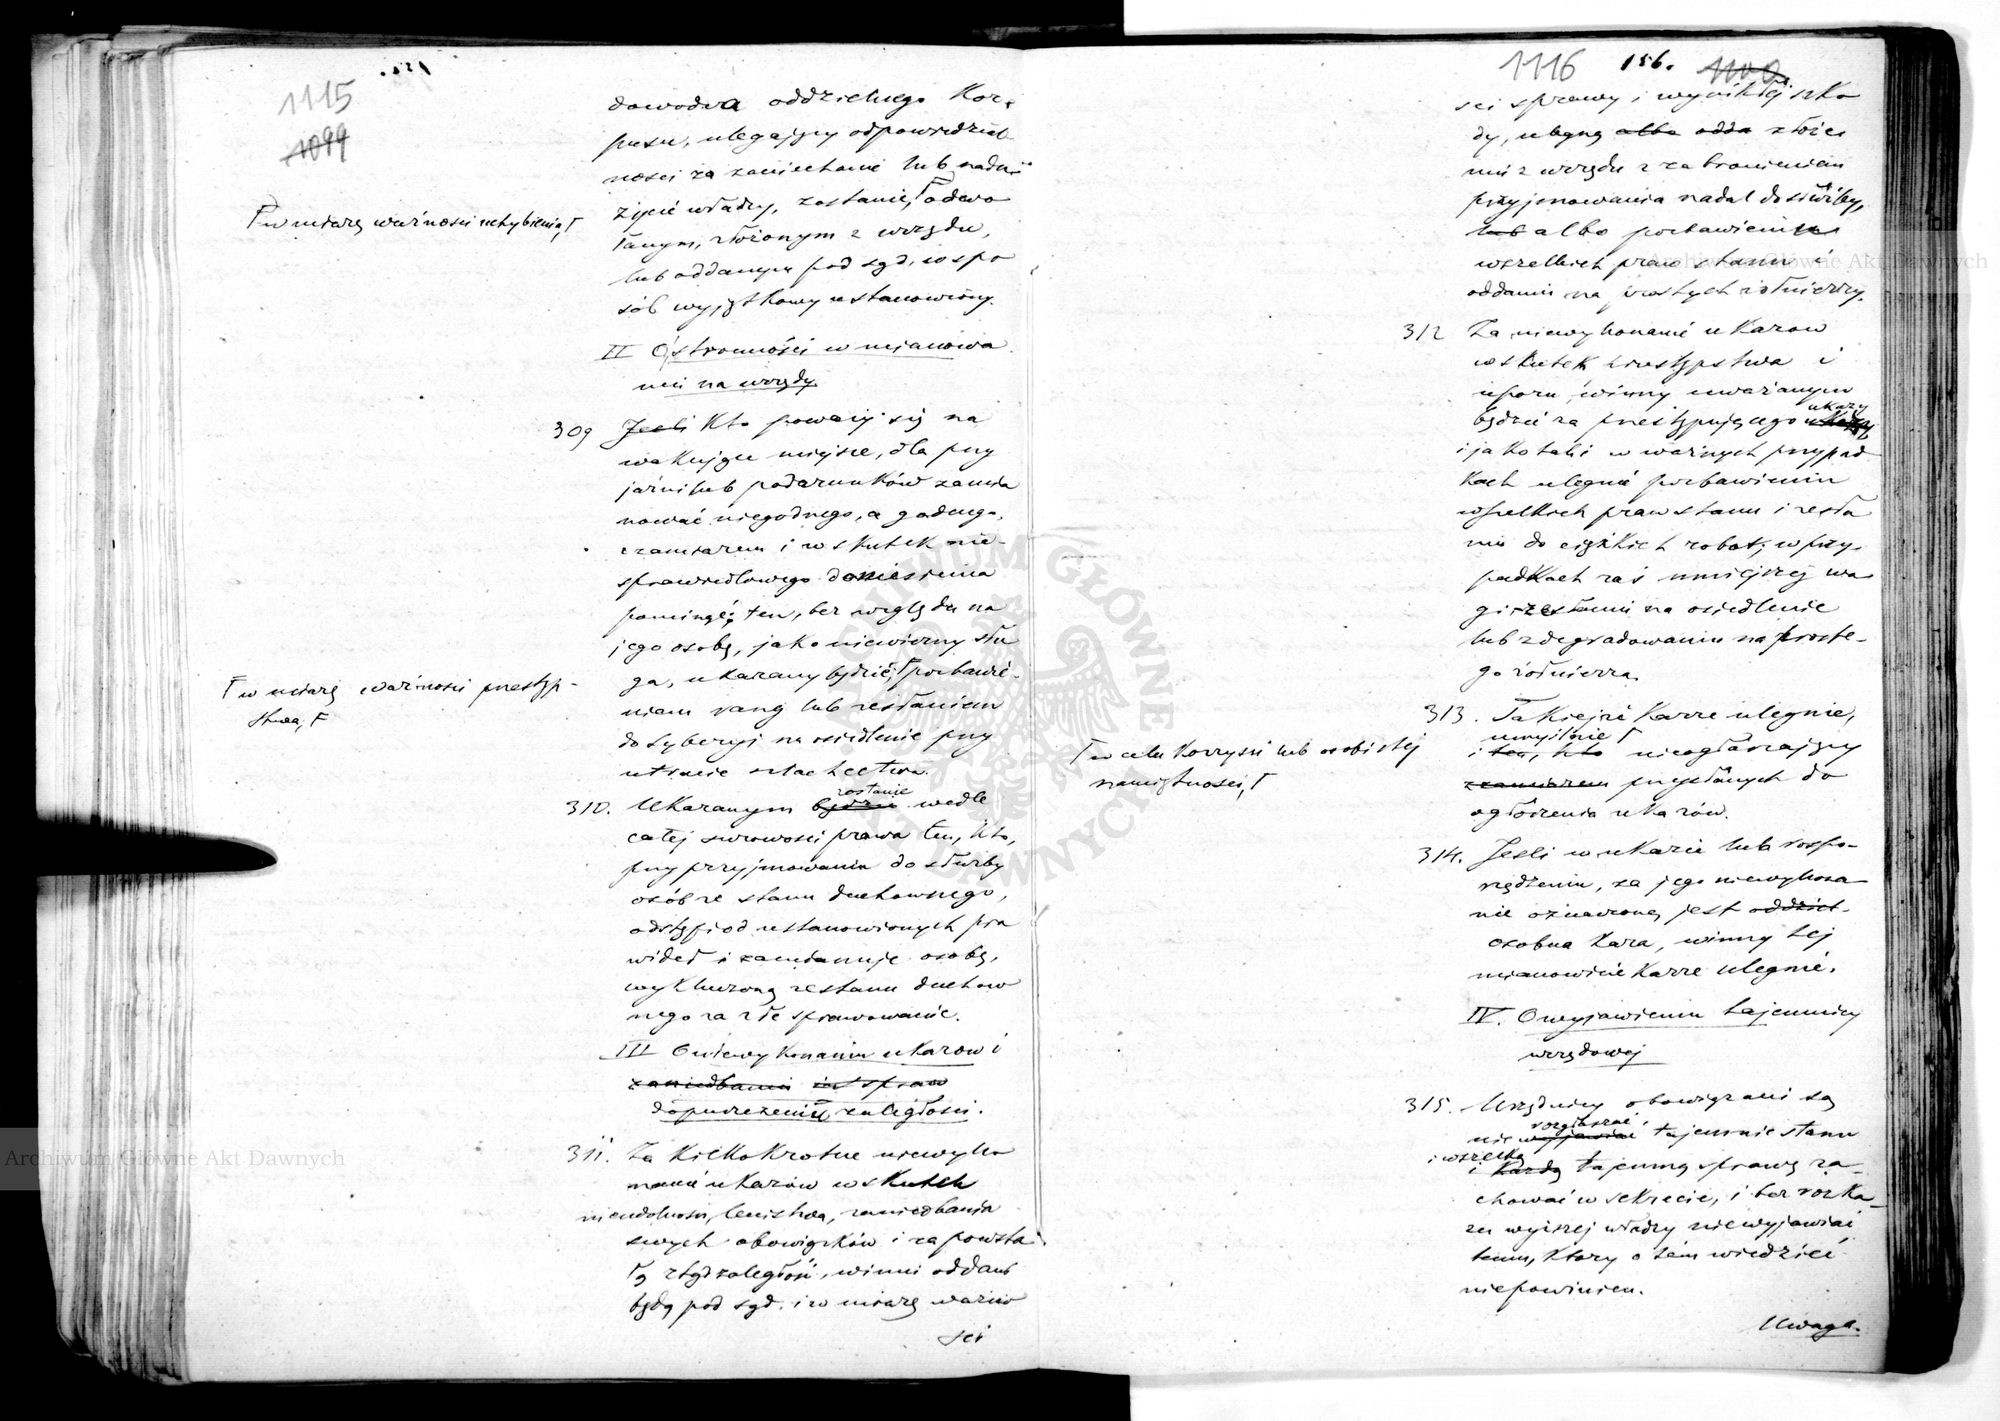 1115
1099
dowodca oddzielnego Kor-
pusu, ulegający odpowiedzial
ności za zaniechanie lub nadu-
życie władzy, zostanie, Γ odwo
łanym, złożonym z urzędu,
lub oddanym pod sąd, w spo
sób wyjątkowy ustanowiony.
Γ w miarę ważności uchybienia, Γ
II Ostrożności w mianowa
niu na urzędy
309 Jeśli Kto poważy się na
wakujące miejsce, dla przy
jaźni lub podarunków zamia
nować niegodnego, a godnego,
z zamiarem i w skutek nie-
sprawiedliwego doniesienia
pominąć; ten, bez względu na
jego osobę, jako niewierny słu
ga, ukarany będzie, Γ pozbawie-
niem rang lub zesłaniem
do Syberyi na osiedlenie przy
utracie szlachectwa.
Γ w miarę ważności przestęp-
stwa, Γ
310. Ukaranym będzie zostanie wedle
całej surowości prawa ten, kto,
przy przyjmowaniu do służby
osób ze stanu duchownego,
odstąpi od ustanowionych pra
wideł i zamianuje osobę,
wykluczoną ze stanu duchow
nego za złe sprawowanie.
III O niewykonaniu ukazow i
zaniedbaniu spraw
dopuszczeniu zaległości.
311. Za kilkokrotne niewyko
nanie ukazów w skutek
nieudolności, lenistwa, zaniedbania
swych obowiązków i za powsta
łą ztąd zaległość, winni oddani
będą pod sąd i w miarę ważno
ści
1116 156. 1100
ści sprawy i wynikłej szko
dy, ulegną albo odda złoże
niu z urzędu z zabronieniem
przyjmowania nadal do służby,
lub albo pozbawieniu
wszelkich praw stanu i
oddaniu na prostych żołnierzy.
312 Za niewykonanie ukazow
w skutek przestępstwa i
uporu, winny uważanym
będzie za przestępującego ukazy
i jako taki w ważnych przypad
kach ulegnie pozbawieniu
wszelkich praw stanu i zesła
niu do ciężkich robot; w przy-
padkach zaś mniejszej wa
gi zesłaniu na osiedlenie
lub zdegradowaniu na proste-
go żołnierza.
313. Takiejże karze ulegnie,
i ten, kto umyślnie Γ nieogłaszający
z zamiarem przysłanych do
ogłoszenia ukazów.
Γ w celu korzyści lub osobistej
namiętności, Γ
314. Jeśli w ukazie lub rozpo-
rządzeniu, za jego niewykona-
nie oznaczoną jest oddziel-
osobna kara, winny tej
mianowicie karze ulegnie.
IV. O wyjawieniu tajemnicy
urzędowej
315. Urzędnicy obowiązani są
nie wyjawiać rozgłaszać, tajemnic stanu
i każdą i wszelką tajemną sprawę za-
chować w sekrecie, i bez rozka-
zu wyższej władzy nie wyjawiać
temu, który o tem wiedzieć
niepowinien.
Uwaga.
Archiwum Główne Akt Dawnych
Archiwum Główne Akt Dawnych